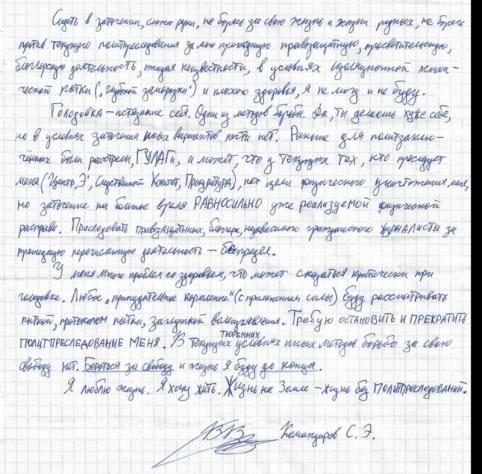 Сидеть в заточении, сложа руки, не борясь за свою жизнь и жизни родных, не борясь
против текущего политпреследования за мою прошедшую правозащитную, просветительскую,
блогерскую деятельность, ожидая неизвестности, в условиях изоляционной психи-
ческой пытки („глубокой заморозки") и плохого здоровья, я не могу и не буду.
Голодовка – истязание себя. Один из методов борьбы. Да, ты делаешь хуже себе,
но в условиях заточения иных вариантов почти нет. Раньше для политзаклю-
чённых были расстрел, ГУЛАГи, и может, что у текущих тех, кто преследует
меня (Центр „Э", Следственный Комитет, Прокуратура), нет цели физического уничтожения меня,
но заточение на большое время РАВНОСИЛЬНО уже реализуемой физической
расправе. Преследовать правозащитника, блогера, независимого гражданского журналиста за
прошедшую перечисленную деятельность – беспредел.
У меня много проблем со здоровьем, что может сказаться критически при
голодовке. Любое „принудительное кормление" (с применением силы) буду рассматривать
пыткой, протоколом пытки, заглушкой волеизъявления. Требую ОСТАНОВИТЬ И ПРЕКРАТИТЬ
ПОЛИТПРЕСЛЕДОВАНИЕ МЕНЯ. В текущих тюремных условиях иных методов борьбы за свою
свободу нет. Бороться за свободу и жизнь я буду до конца.
Я люблю жизнь. Я хочу жить. Жизнь на Земле – жизнь без политпреследований.
Командиров С. Э.